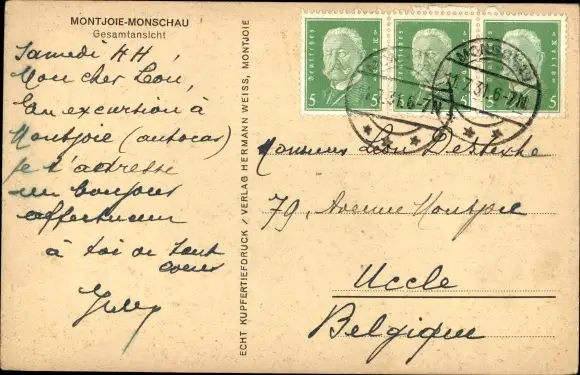 MONTJOIE-MONSCHAU
Gesamtansicht
Samedi
Mon cher Léon,
En excursion à
Montjoie (autocar)
je t'adresse
un bonjour
affectueux
à toi de tout
coeur
ECHT KUPFERTIEFDRUCK / VERLAG HERMANN WEISS, MONTJOIE
Deutsches Reich
5 5
Deutsches Reich
5
Deutsches Reich
5
11.7.31.6-7N
Monsieur Léon
79, Avenue Montjoie
Uccle
Belgique